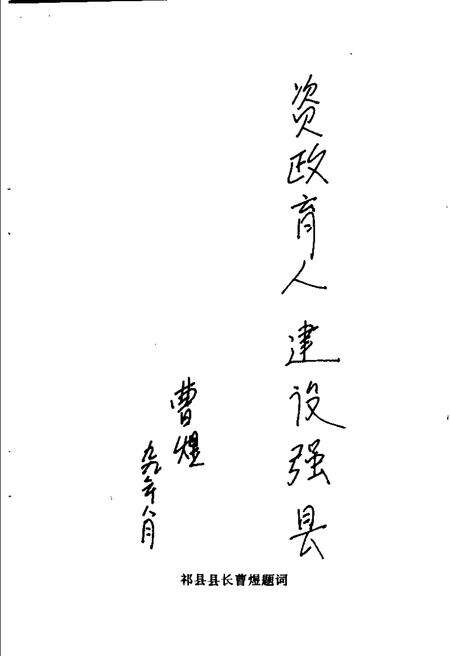 资政育人建设强县
曹煜
九九年八月
祁县县长曹煜题词